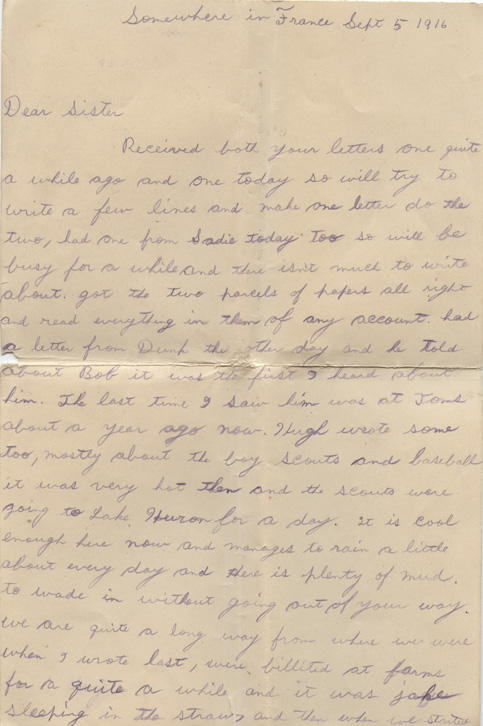 Somewhere in France Sept 5 1916
Dear Sister
Received both your letters one quite
a while ago and one today so will try to
write a few lines and make one letter do the
two, had one from Sadie today too so will be
busy for a while and there isn't much to write
about. got the two parcels of papers all right
and read everything in them of any account. had
a letter from Dunk the other day and he told
about Bob it was the first I heard about
him. The last time I saw him was at Toms
about a year ago now. Hugh wrote some
too, mostly about the boy scouts and baseball
it was very hot then and the scouts were
going to Lake Huron for a day. It is cool
enough here now and manages to rain a little
about every day and there is plenty of mud.
to wade in without going out of your way.
we are quite a long way from where we were
when I wrote last, were billited at farms
for a quite a while and it was safe
sleeping in the straw, and then when we started